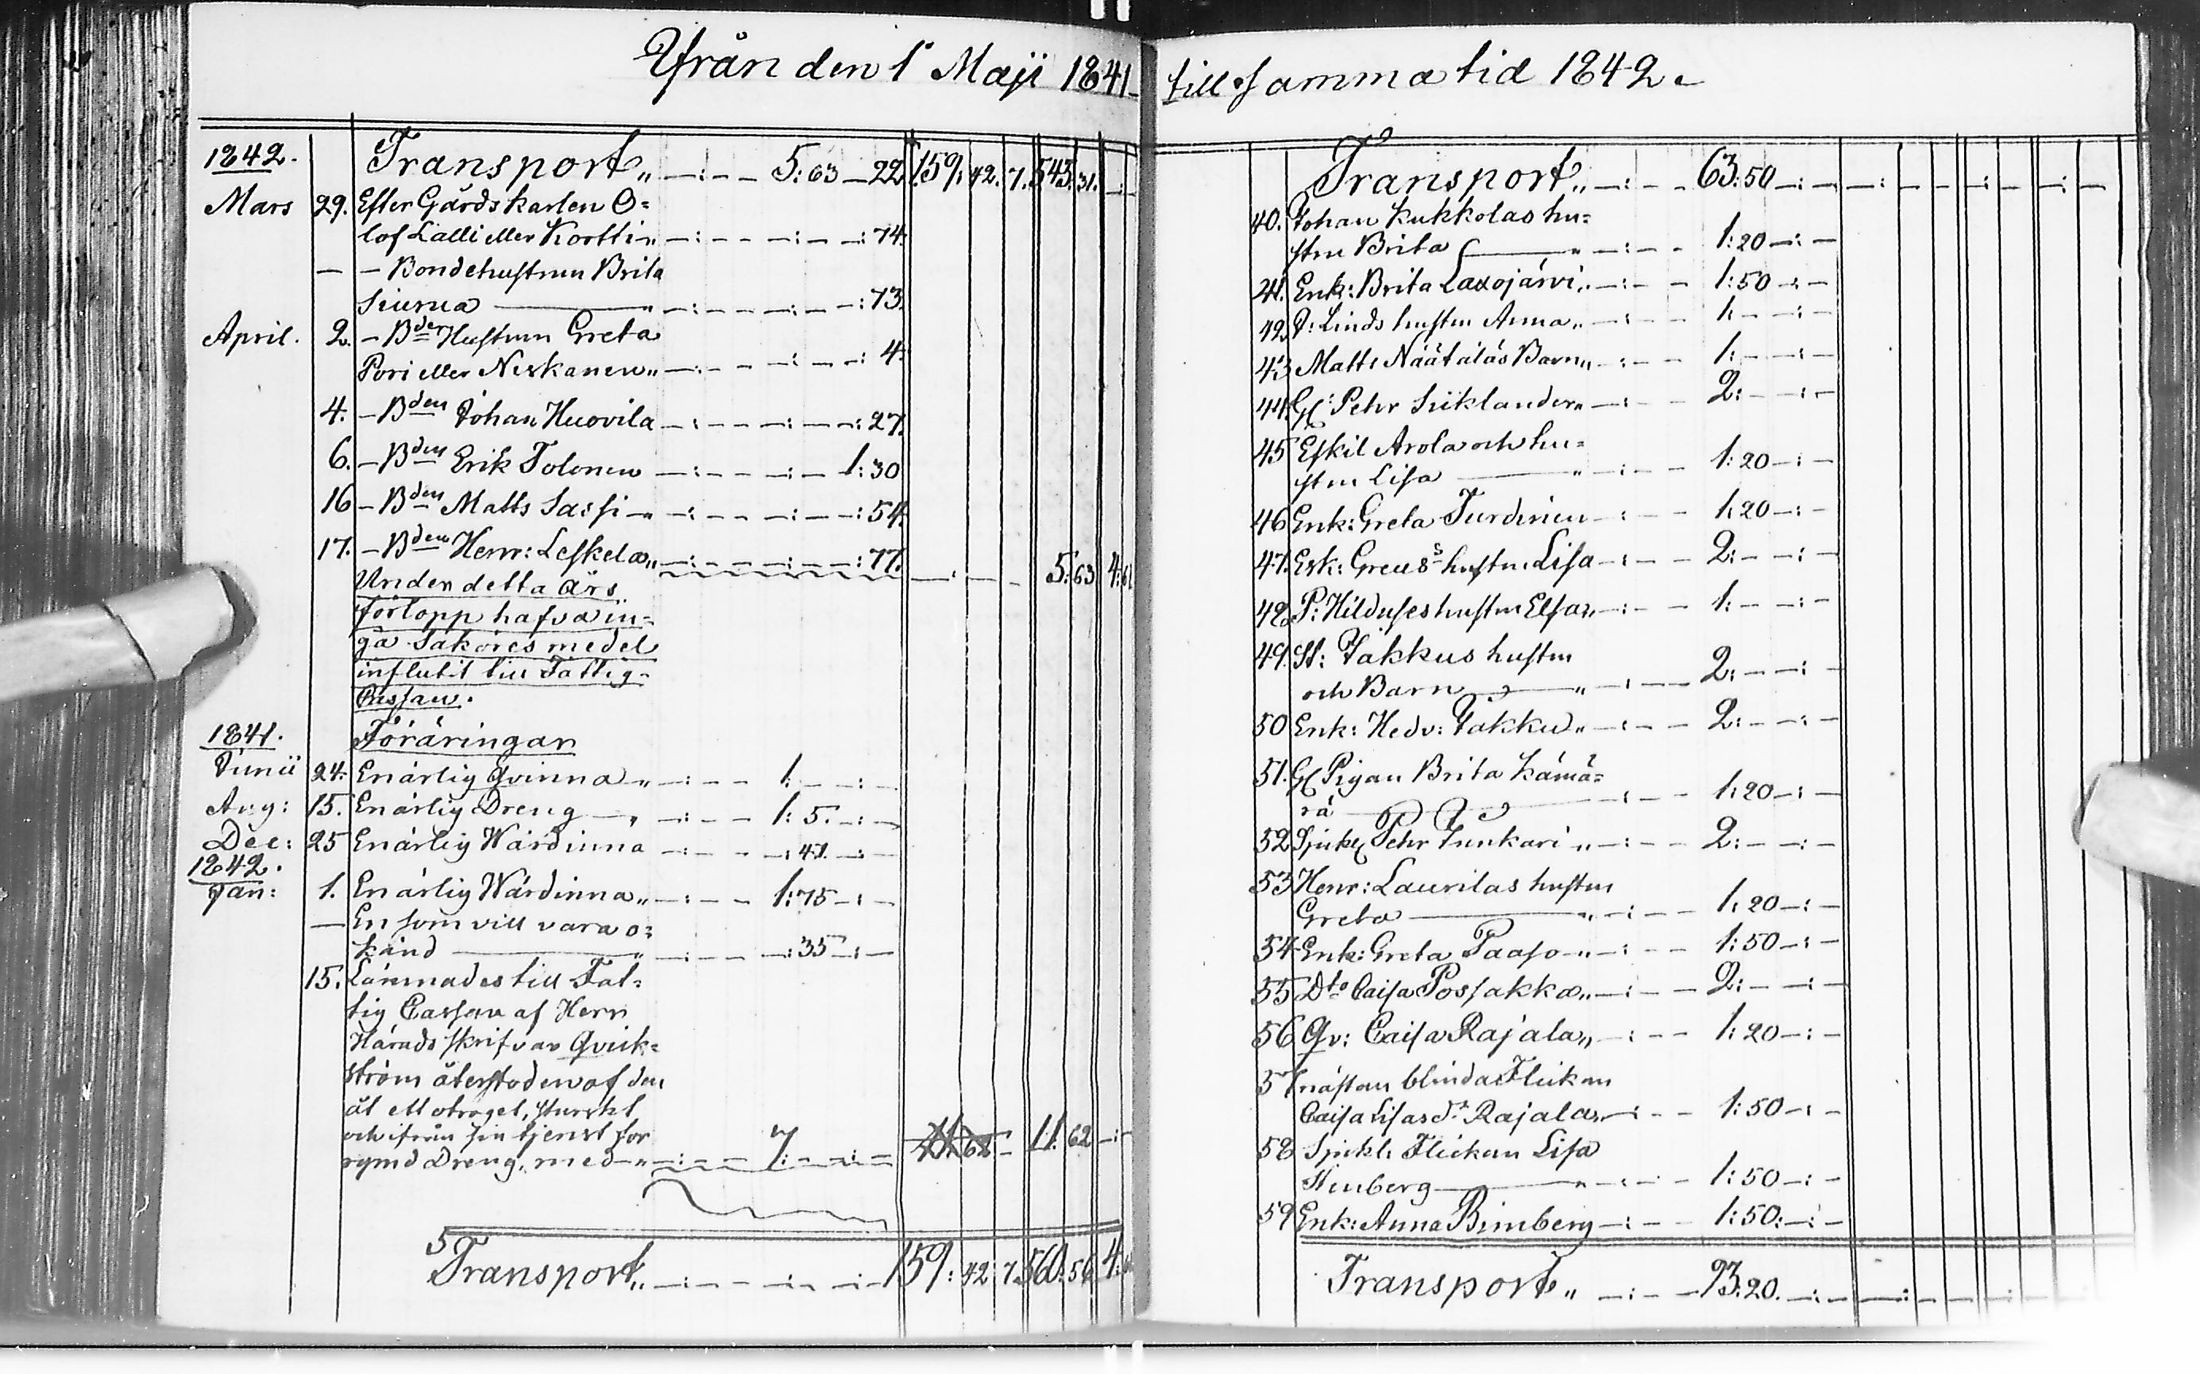 Ifrån den 1 Maji 1841 till samma tid 1842.
1842. Transport „ 5: 63 22 159: 42. 7. 543. 31.
Mars 29. Efter Gårdskarlen O=
lof Lalli eller Kortti „ 74.
— — Bondehustrun Brita
Siurua „ 73.
April. 2. — Bde Hustrun Greta
Pori eller Niskanen „ 4.
4. — Bden Johan Huovila 27.
6. — Bden Erik Tolonen 1: 30
16 — Bden Matts Sassi „ 54.
17. — Bden Henr: Leskelä „ 77. 5: 63 4:
Under detta års
förlopp hafva in-
ga Saköres medel
influtit till Fattig-
Cassan.
1841. Föräringar
Junii 24. En ärlig Qvinna „ 1:
Aug: 15. En ärlig Dreng „ 1: 5.
Dec: 25 En ärlig Wärdinna : 47.
1842.
Jan: 1. En ärlig Wärdinna „ 1: 75
— En som vill vara o=
känd „ : 35
15. Lämnades till Fat=
tig Cassan af Herr
Häradsskrifvar Qvick=
ström återstoden af den
åt ett otroget, sturskt
och ifrån sin tjenst för
rymd Dreng, med „ 7: 11: 62
5
Transport „ 159: 42 7. 560: 56 4:
Transport „ 63: 50
40. Johan Kukkolas hu=
stru Brita „ 1: 20
41. Enk: Brita Laxojärvi „ 1: 50
42. J: Linds hustru Anna „ 1:
43 Matts Näätäläs Barn „ 1:
44. Gl: Pehr Siiklander „ 2:
45 Eskil Arola och hu=
stru Lisa „ 1: 20
46 Enk: Greta Turdinen 1: 20
47. Esk: Greus hustru Lisa 2:
48. P: Hilduses hustru Elsa „ 1:
49. St: Jakkus hustru
och Barn „ 2:
50 Enk: Hedv: Jakku „ 2:
51. Gl Pigan Brita Kämä=
rä 1: 20
52 Sjukl Pehr Junkari „ 2:
53 Henr: Laurilas hustru
Greta „ 1: 20
54 Enk: Greta Paaso „ 1: 50
55 Dto Caisa Possakka „ 2:
56 Qv: Caisa Rajala „ 1: 20
57 nästan blinda Flickan
Caisa Lisas dr Rajala „ 1: 50
58 Sjukl: Flickan Lisa
Stenberg „ 1: 50
59 Enk: Anna Bimberg 1: 50
Transport „ 93: 20.